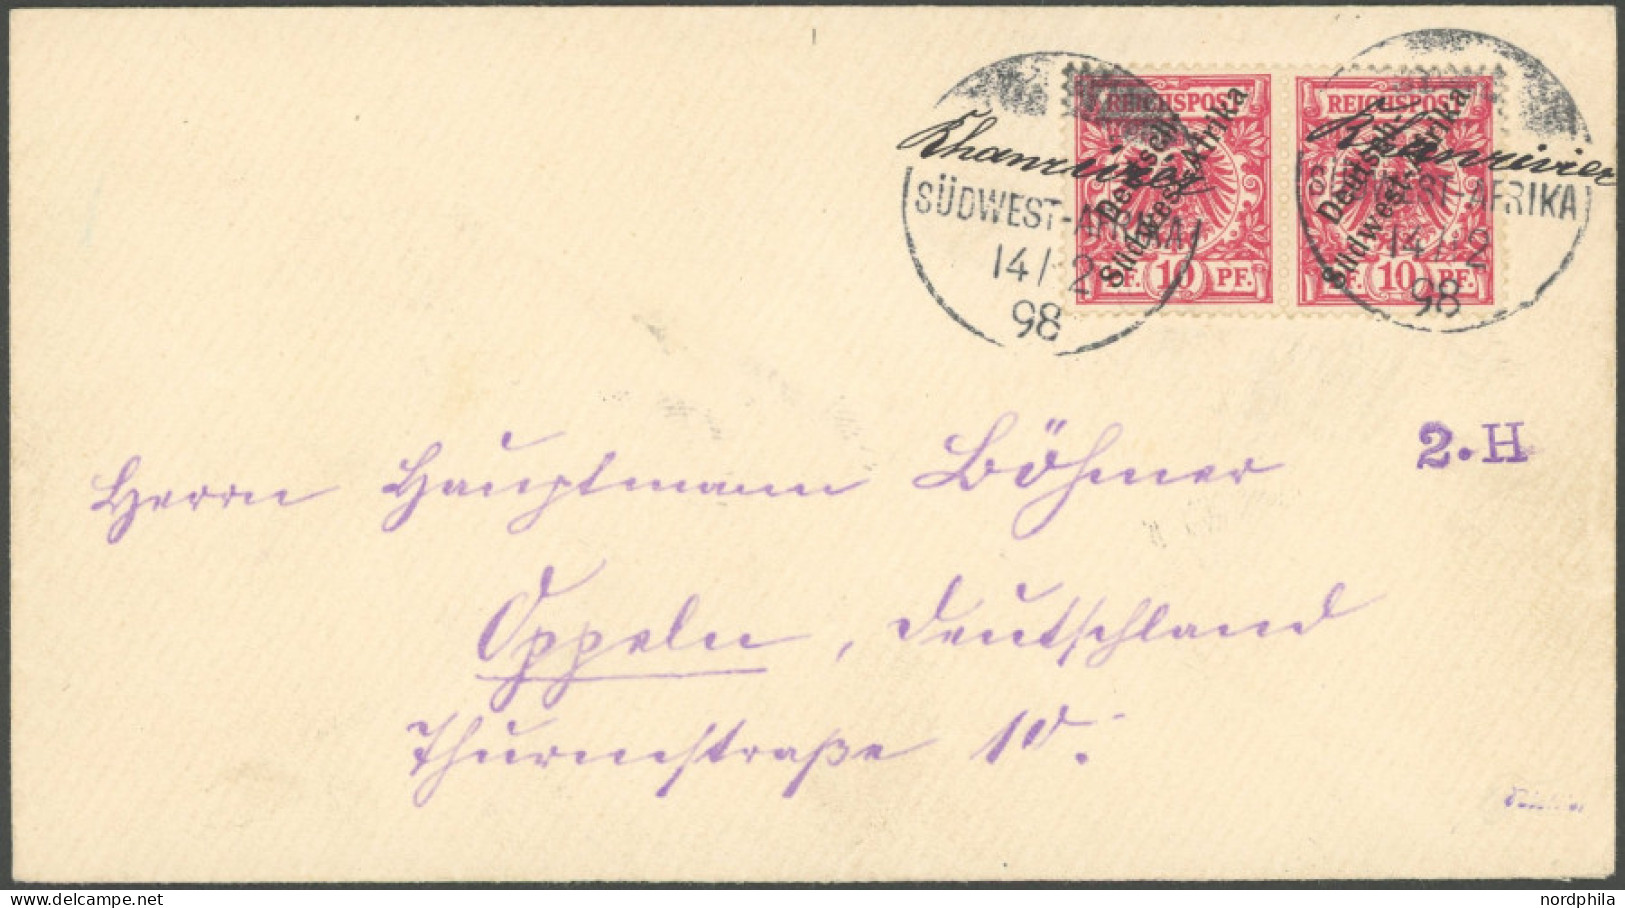 REICHSPOST REICHSPOST
Deutsch- Südwest-Afrika Deutsch- Südwest-Afrika
10 PF. 10 PF.
Khanrivier Khanrivier
SÜDWEST-AFRIKA SÜDWEST-AFRIKA
14/2 14/2
98 98
2.H
Herrn Hauptmann Böhmer
Oppeln, Deutschland
Thurmstraße
nordphila